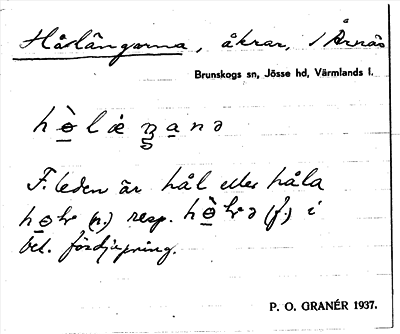 Hållängarna, åkrar, i Årnäs
Brunskogs sn, Jösse hd, Värmlands l.
F.leden är hål eller håla
(n.) resp. (f.) i
bet. fördjupning.
P. O. GRANÉR 1937.